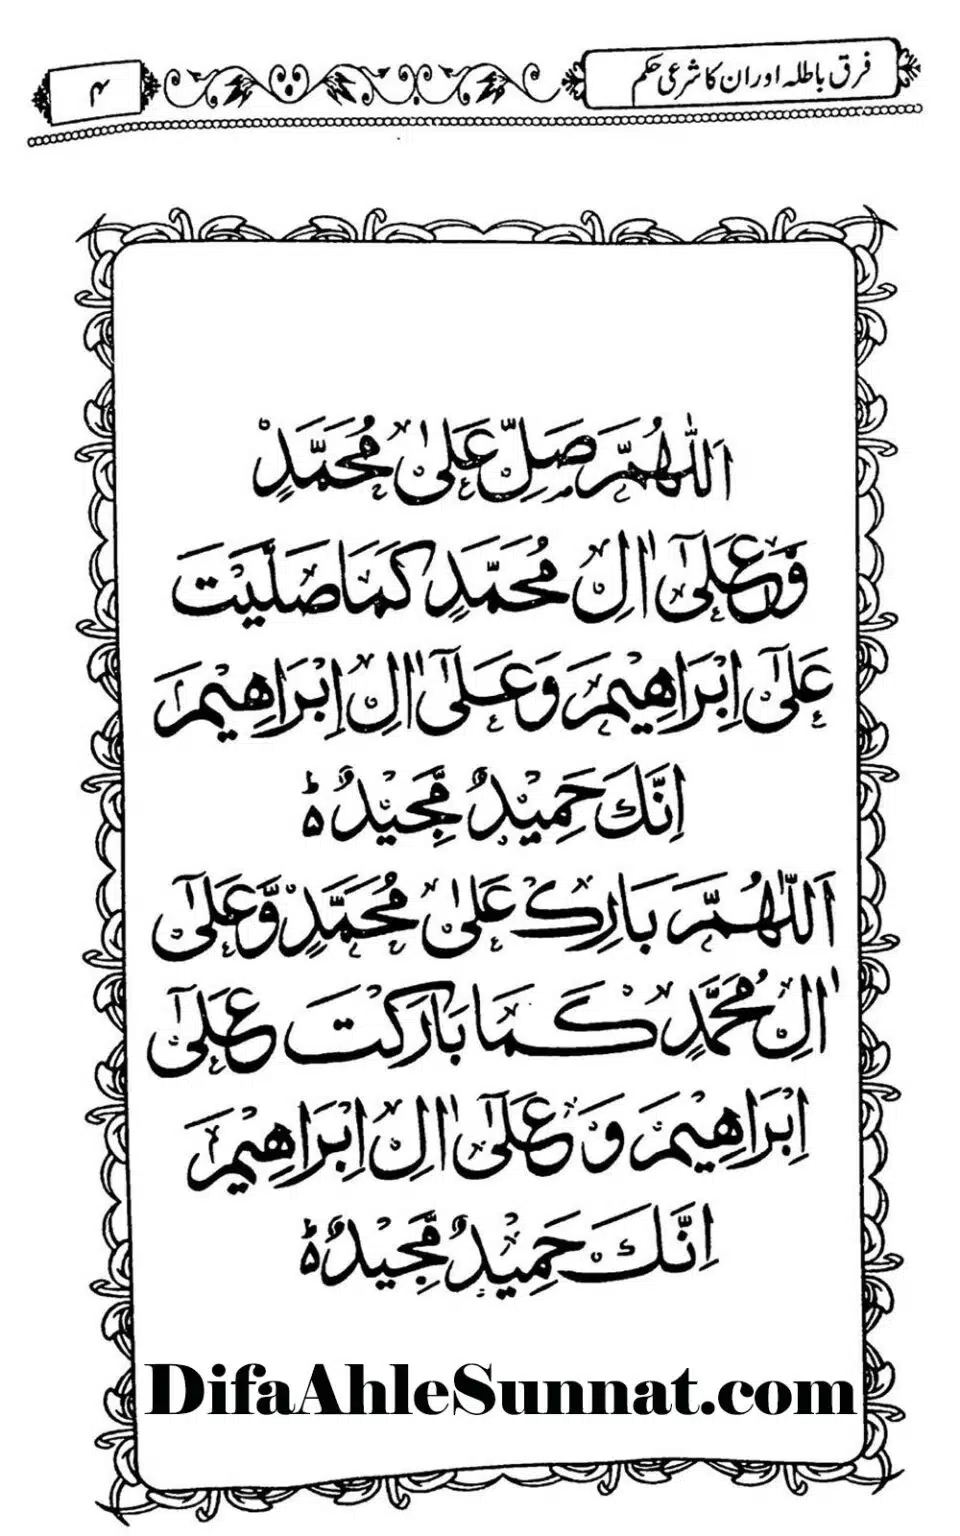 فرق باطلہ اور ان کا شرعی حکم
۴
اَللّٰهُمَّ صَلِّ عَلٰى مُحَمَّدٍ
وَّعَلٰٓى اٰلِ مُحَمَّدٍ كَمَا صَلَّيْتَ
عَلٰٓى اِبْرَاهِيْمَ وَعَلٰٓى اٰلِ اِبْرَاهِيْمَ
اِنَّكَ حَمِيْدٌ مَّجِيْدٌ ؕ
اَللّٰهُمَّ بَارِكْ عَلٰى مُحَمَّدٍ وَّعَلٰٓى
اٰلِ مُحَمَّدٍ كَمَا بَارَكْتَ عَلٰٓى
اِبْرَاهِيْمَ وَعَلٰٓى اٰلِ اِبْرَاهِيْمَ
اِنَّكَ حَمِيْدٌ مَّجِيْدٌ ؕ
DifaAhleSunnat.com